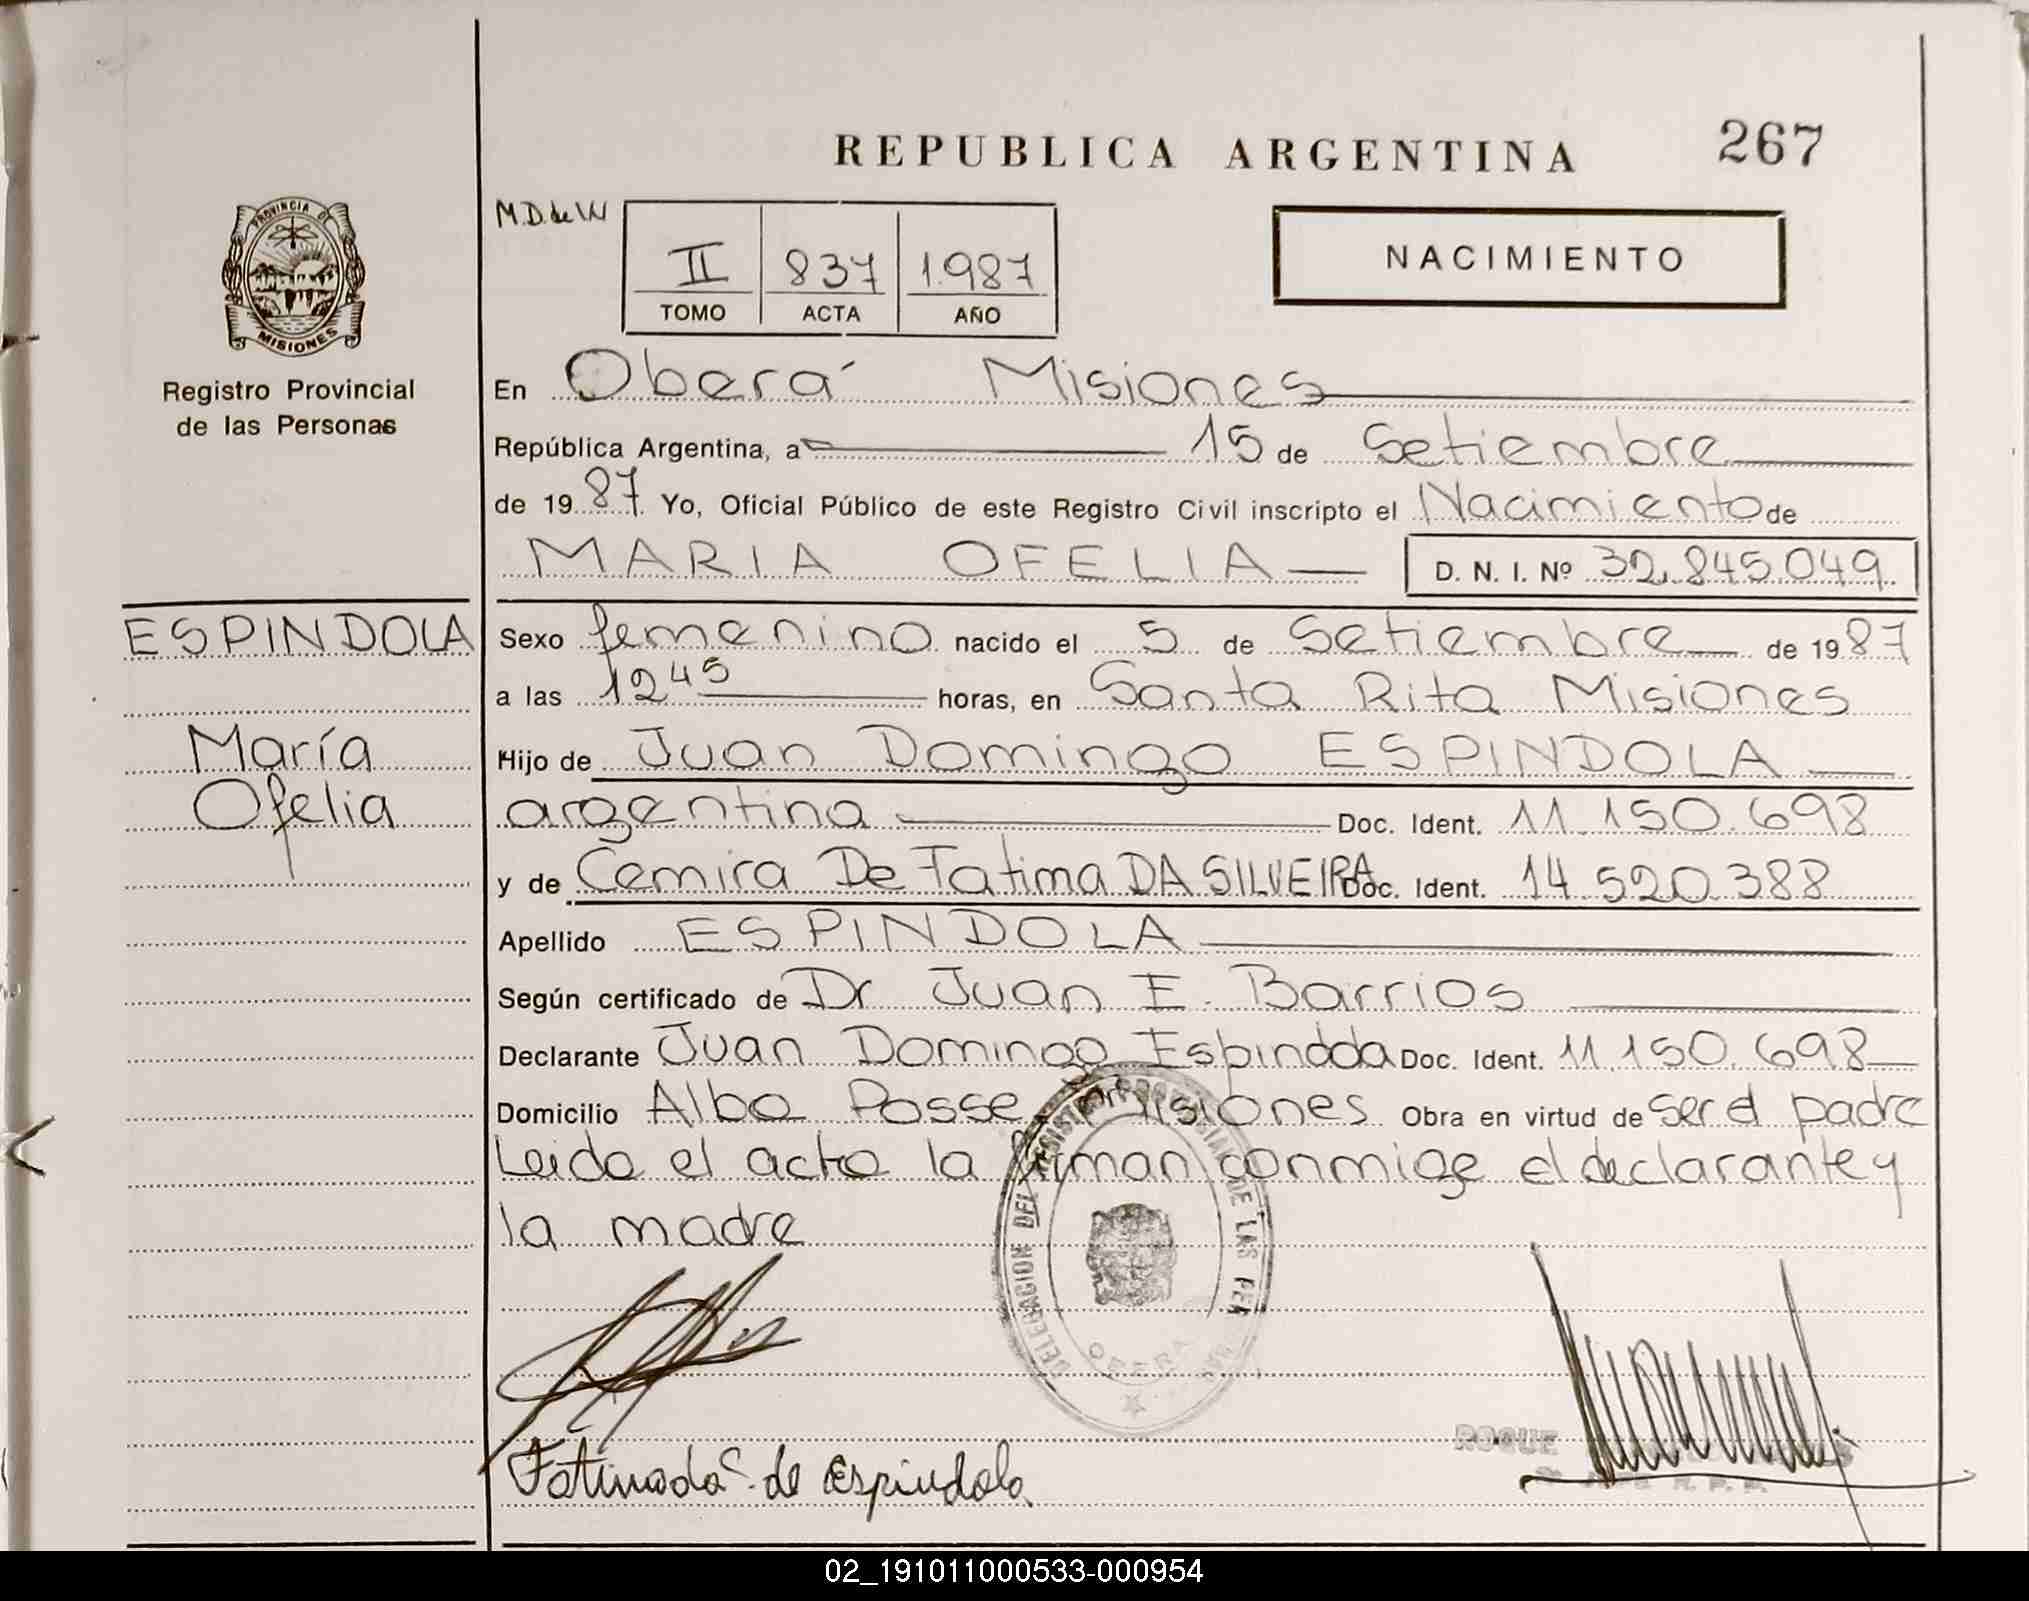 REPUBLICA ARGENTINA
267
PROVINCIA DE
MISIONES
Registro Provincial
de las Personas
M.D. de W
II 837 1.987
TOMO ACTA AÑO
NACIMIENTO
En Oberá Misiones
República Argentina, a 15 de Setiembre
de 19 87 Yo, Oficial Público de este Registro Civil inscripto el Nacimiento de
MARIA OFELIA D. N. I. Nº 32.845.049
ESPINDOLA
María
Ofelia
Sexo femenino nacido el 5 de Setiembre de 19 87
a las 12 45 horas, en Santa Rita Misiones
Hijo de Juan Domingo ESPINDOLA
argentina Doc. Ident. 11.150.698
y de Cemira De Fatima DA SILVEIRA Doc. Ident. 14.520.388
Apellido ESPINDOLA
Según certificado de Dr Juan E. Barrios
Declarante Juan Domingo Espindola Doc. Ident. 11.150.698
Domicilio Alba Posse Misiones Obra en virtud de ser el padre
Leida el acta la firman conmigo el declarante y
la madre
DELEGACION DEL REGISTRO PROVINCIAL DE LAS PER
OBERA
ROQUE
Fatima da S. de Espindola
02_191011000533-000954